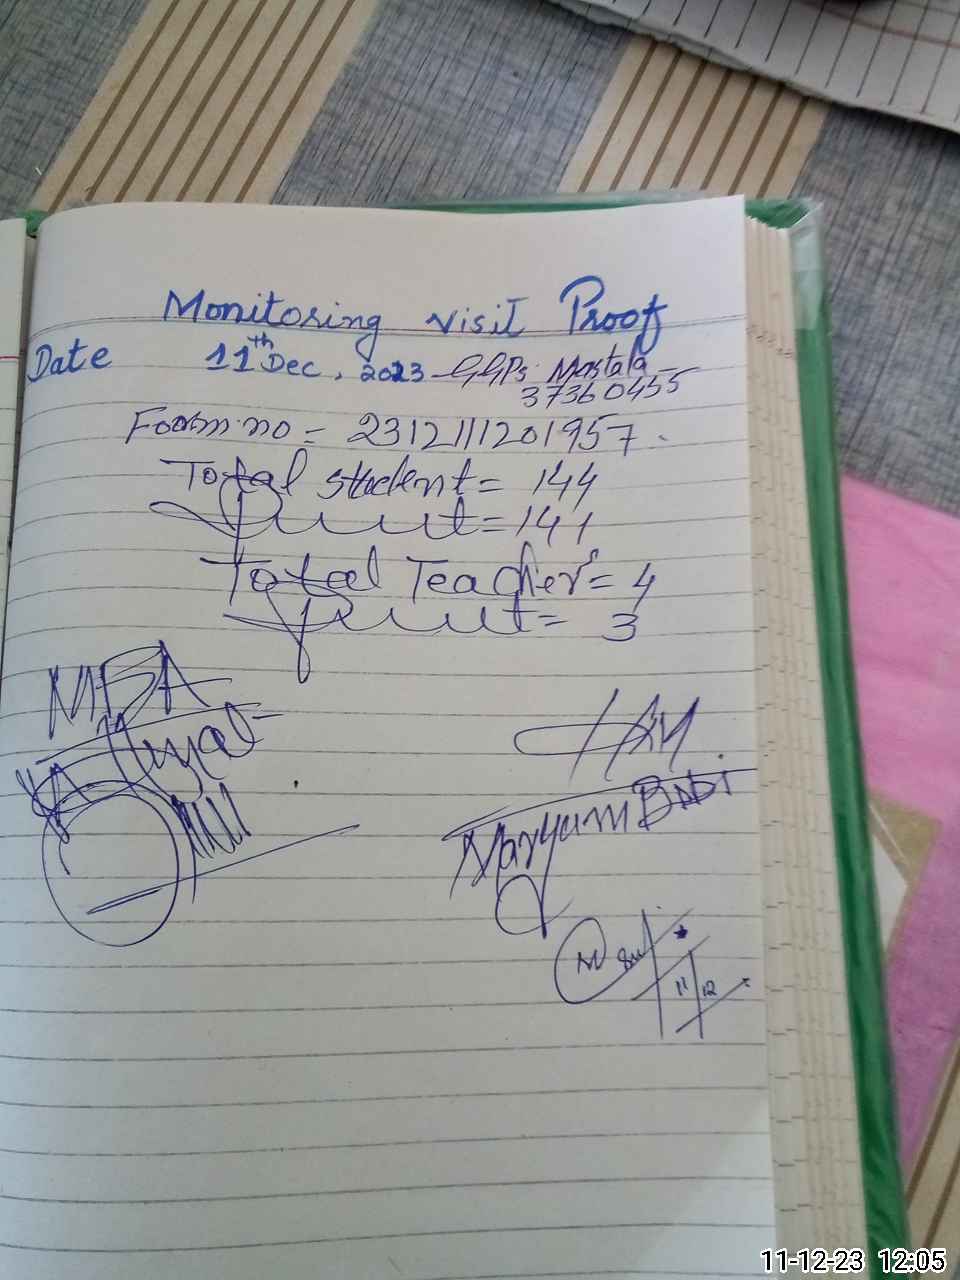 Monitoring visit Proof
Date 11th Dec, 2023 GGPS Mastala
37360455
Form no = 2312111201957.
Total student = 144
Present = 141
Total Teacher's = 4
Present = 3
MEA
HM
Maryum BiBi
11/12
11-12-23 12:05